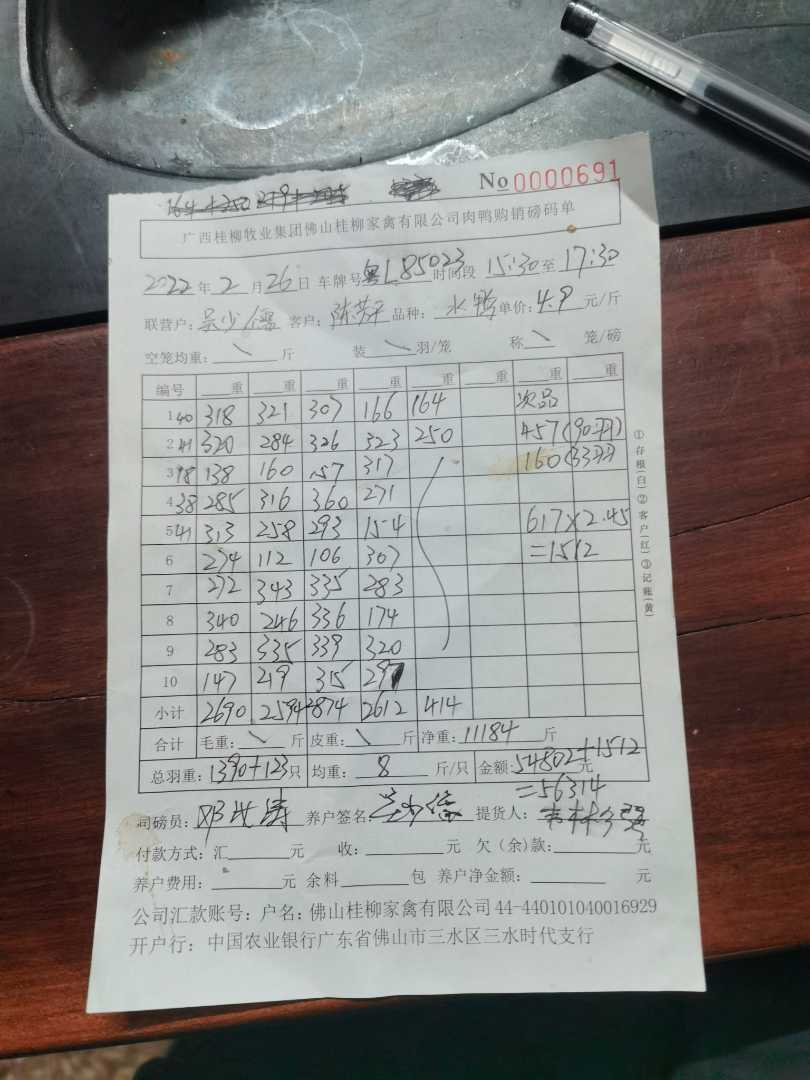 No 0000691
广西桂柳牧业集团佛山桂柳家禽有限公司肉鸭购销磅码单
2022年2月26日 车牌号粤L85023时间段 15:30至17:30
联营户:吴少儒 客户:陈芳平 品种:水鸭 单价:4.9元/斤
空笼均重:\斤 装\羽/笼 称\笼/磅
编号 重 重 重 重 重 重 重 重
1 40 318 321 307 166 164 次品
2 41 320 284 326 323 250 457(90羽)
3 18 138 160 157 317 160(33羽)
4 38 285 316 360 271
5 41 313 258 293 154 617×2.45
6 274 112 106 307 =1512
7 272 343 335 283
8 340 246 336 174
9 283 335 339 320
10 147 219 315 297
小计 2690 2594 2874 2612 414
合计 毛重:\斤 皮重:\斤 净重:11184斤
总羽重:1390+123只 均重:8斤/只 金额:54802+1512元
=56314
司磅员: 养户签名: 提货人:
付款方式:汇 元 收: 元 欠(余)款: 元
养户费用: 元 余料 包 养户净金额: 元
公司汇款账号:户名:佛山桂柳家禽有限公司44-440101040016929
开户行:中国农业银行广东省佛山市三水区三水时代支行
①存根(白)②客户(红)③记账(黄)